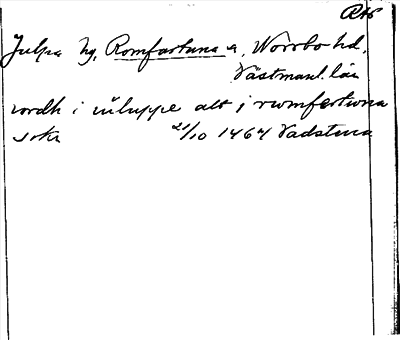 RA8
Julpa by, Romfartuna s, Norrbo hd,
Västmanl. län
iordh i iuluppe alt i rwmfertuna
sokn 21/10 1464 Vadstena